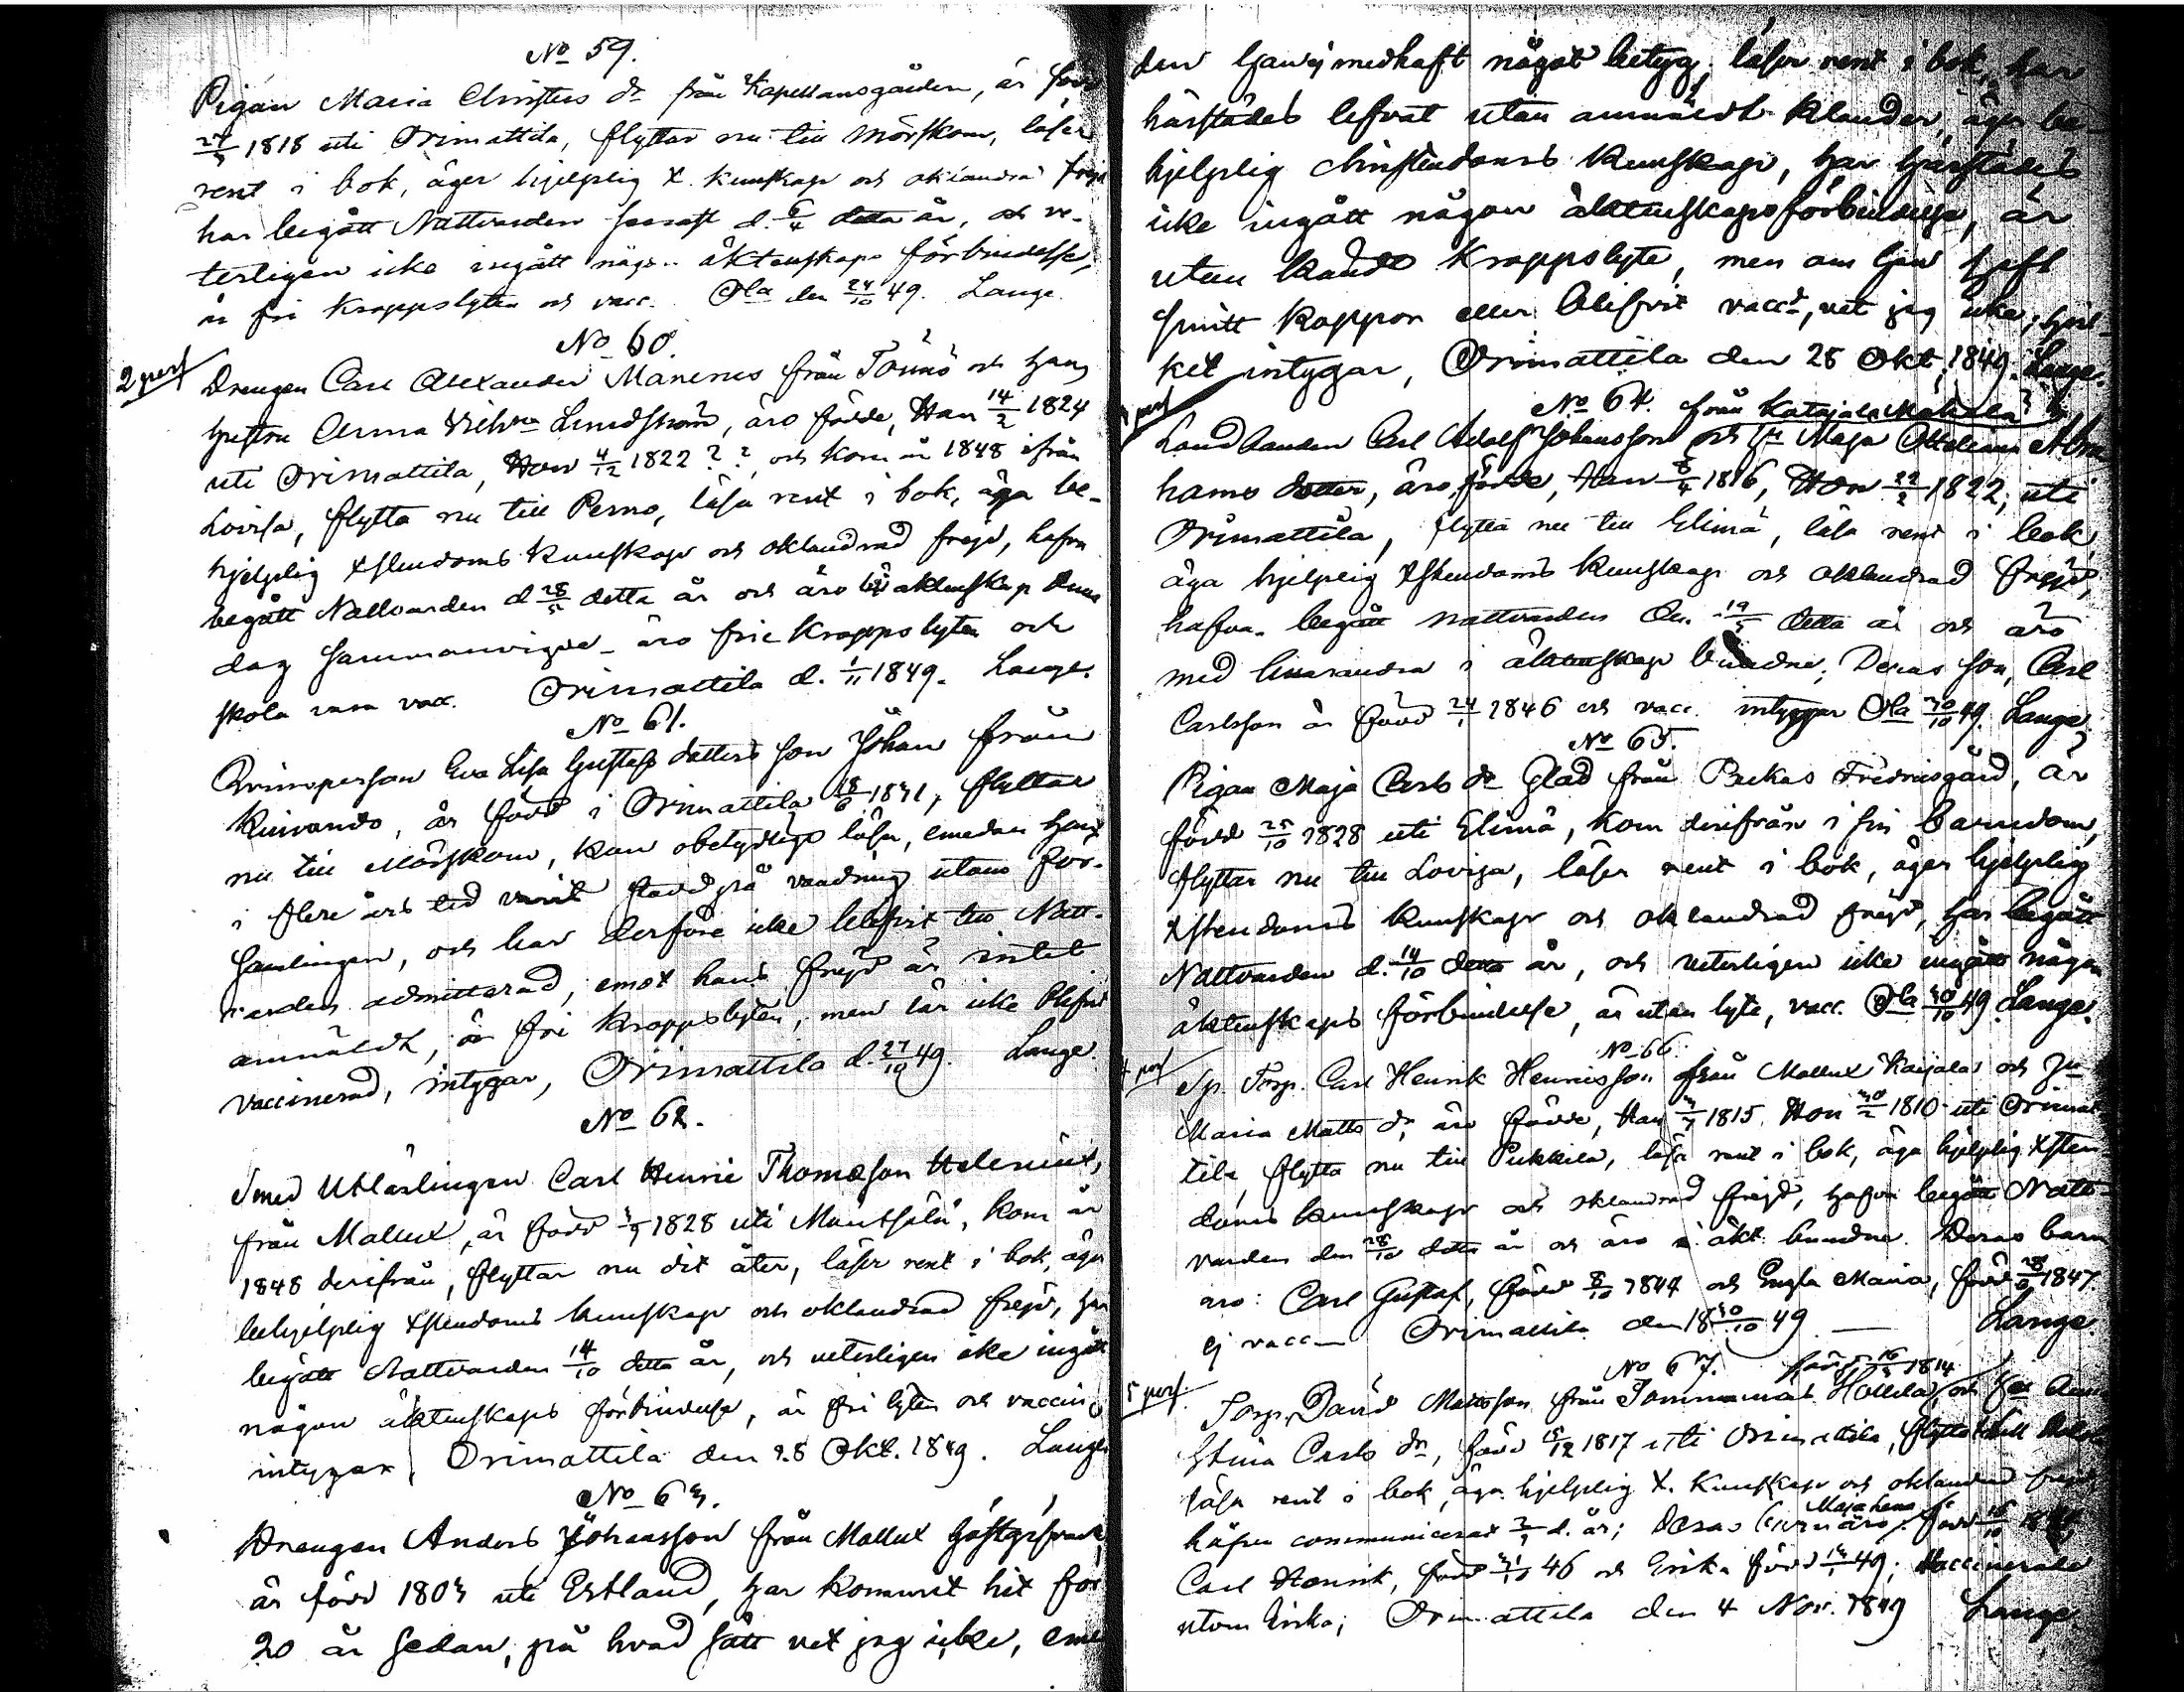 No 59.
Pigan Maria Christers dr från Kapellansgården, är född
27/3 1818 uti Orimattila, flyttar nu till Mörskom, läser
rent i bok, äger hjelplig X. kunskap och oklandrad frejd
har begått Nattvarden senast d. 6/4 detta år, och ve-
terligen icke ingått någ.. äktenskaps förbindelse,
är fri kroppslyten och vacc. Ola den 24/10 49. Lange.
No 60.
2 pers
Drengen Carl Alexander Manenus från Tönnö och hans
hustru Anna Vilhna Lindström, äro födde, Han 14/2 1824
uti Orimattila, Hon 4/12 1822 ? ? och kom år 1848 ifrån
Lovisa, flytta nu till Perno, läsa rent i bok, äga be-
hjelplig Xstendoms kunskap och oklandrad frejd, hafva
begått Nattvarden d 28/5 detta år och äro till äktenskap denna
dag sammanvigde - äro frie kroppslyten och
skola vara vacc. Orimattila d. 1/11 1849. Lange.
No 61.
Qvinsperson Eva Lisa Gustafs dotters son Johan från
Kuivando, är född i Orimattila 18/6 1831, flyttar
nu till Mörskom, kan obetydligt läsa, emedan han
i flere års tid varit stadd på vandring utom för-
samlingen, och har derföre icke blifvit till Natt-
varden admitterad, emot hans frejd är intet
anmäldt, är fri kroppslyten, men lär icke blifvit
vaccinerad, intygar, Orimattila d. 27/10 49. Lange.
No 62.
Smed Utlärlingen Carl Henric Thomasson Helenius,
från Mallux, är född 3/9 1828 uti Mäntsälä, kom år
1848 derifrån, flyttar nu dit åter, läser rent i bok, äger
behjelplig Xstendoms kunskap och oklandrad frejd, har
begått Nattvarden 14/10 detta år, och veterligen icke ingått
någon äktenskaps förbindelse, är fri lyten och vaccin.
intygar, Orimattila den 28 Okt. 1849. Lange
No 63.
Drengen Anders Johansson från Mallux
är född 1803 uti Estland, har kommit hit för
20 år sedan, på hvad sätt vet jag icke, eme
dan han ej medhaft något betyg, läser rent i bok, har
härstädes lefvat utan anmäldt klander, äger be-
hjelplig Christendoms kunskap, har härstädes
icke ingått någon äktenskapsförbindelse, är
utan kändt kroppslyte, men om han haft
smitt koppor eller blifvit vaccd, vet jag icke; hvil-
ket intygar, Orimattila den 28 Okt. 1849. Lange.
No 64. från Katajala Mattila
Landbonden Carl Adolf Johansson och hu Maja Ottiliana Abra
hams dotter, äro födde, Han 8/4 1816, Hon 22/2 1822, uti
Orimattila, flytta nu till Elimä, läsa rent i bok,
äga hjelplig Xstendoms kunskap och oklandrad frejd,
hafva begått nattvarden den 19/5 detta år och äro
med hvarandra i äktenskap bundne; Deras son, Carl
Carlsson är född 24/1 1846 och vacc. intygar Ola 30/10 49. Lange
No 65.
Pigan Maja Carls dr Glad från Packas Fredriksgård, är
född 25/10 1828 uti Elimä, kom derifrån i sin barndom,
flyttar nu till Lovisa, läser rent i bok, äger hjelplig
Xstendoms kunskap och oklandrad frejd, har begått
Nattvarden d. 14/10 detta år, och veterligen icke ingått någon
äktenskaps förbindelse, är utan lyte, vacc. Ola 30/10 49. Lange.
No 66.
4 pers
Sp. Torp. Carl Henrik Henriksson från Mallux Kaijalas och hu
Maria Matts dr, äro födde, Han 3/7 1815. Hon 30/2 1810 uti Orimat-
tila, flytta nu till Pukkila, läsa rent i bok, äga hjelplig Xsten
doms kunskap och oklandrad frejd, hafva begått Natt-
varden den 28/10 detta år och äro i äkt. bundne. Deras barn
äro: Carl Gustaf, född 8/10 1844 och Engla Maria, född 28/9 1847.
ej vacc. — Orimattila den 18 30/10 49 — Lange.
No 67. född 16/3 1814
5 pers.
Torp. David Mattsson från Tommamas Hollila, och hu Anna
Stina Carls dr, född 18/12 1817 uti Orimattila, flytta till
läsa rent i bok, äga hjelplig X. kunskap och oklandrad frejd,
hafva communicerat 3/7 d. år; Deras barn äro: Maja Lena född 16/10
Carl Henrik, född 31/10 46 och Erika född 13/1 49; Vaccinerade
utom Erika; Orimattila den 4 Nov. 1849 Lange.